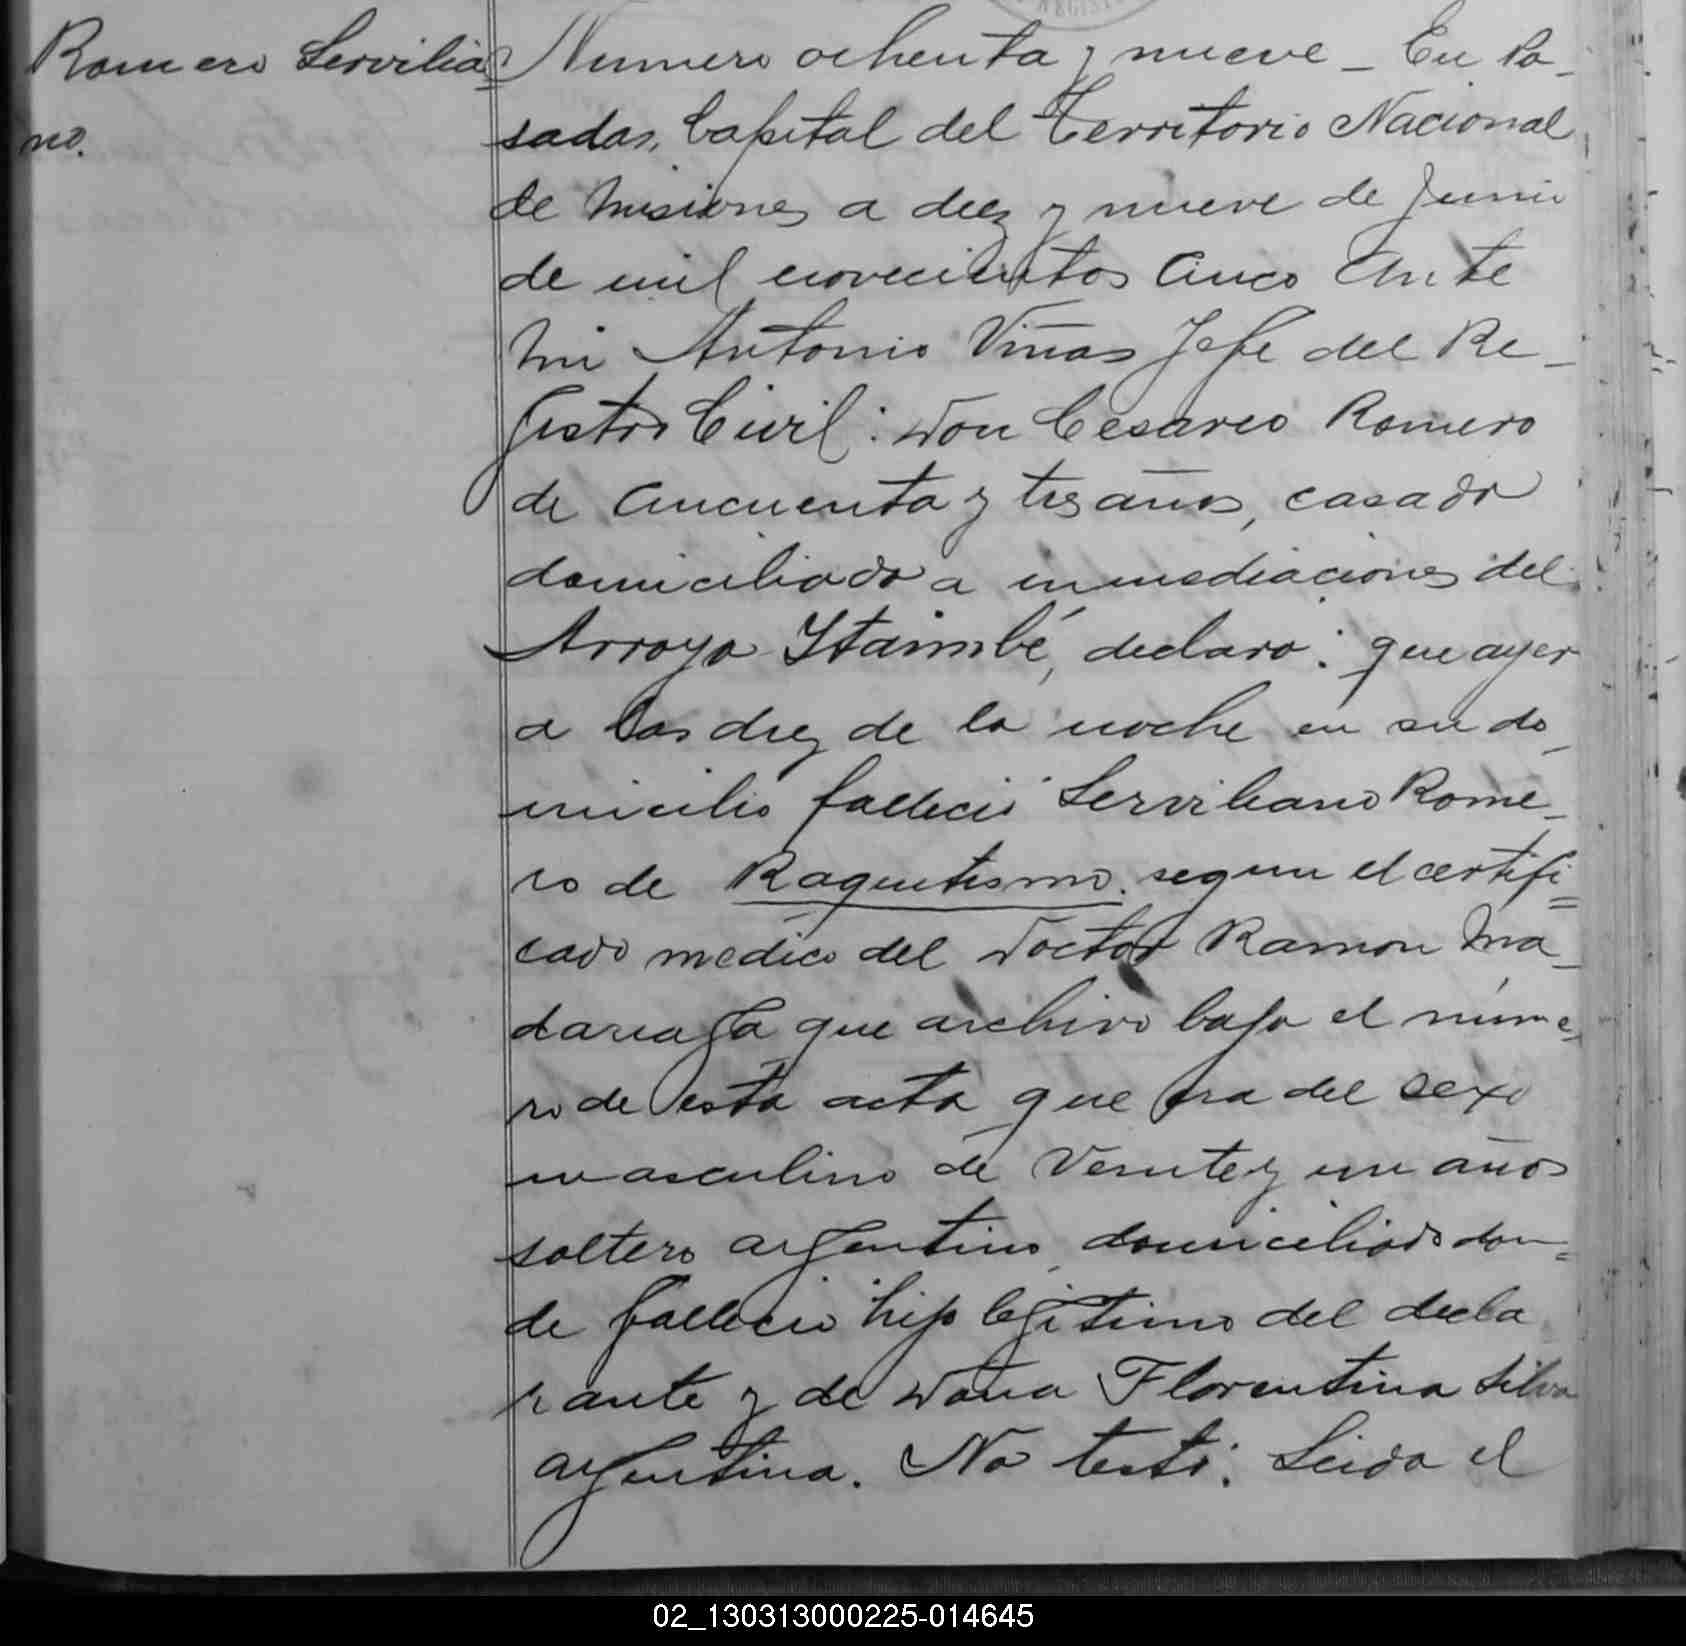 Romero Servilia
no.
Numero ochenta y nueve _ En Po_
sadas, Capital del Territorio Nacional
de Misiones a diez y nueve de Junio
de mil novecientos cinco Ante
mi Antonio Viñas Jefe del Re_
gistro Civil: Don Cesareo Romero
de cincuenta y tres años, casado
domiciliado a inmediaciones del
Arroyo Itaimbé, declaro: que ayer
a las diez de la noche en su do_
micilio falleció Serviliano Rome_
ro de Raquitismo. segun el certifi=
cado medico del Doctor Ramon Ma_
dariaga que archivo bajo el núme_
ro de esta acta que era del sexo
masculino de veinte y un años
soltero argentino, domiciliado don=
de fallecio hijo legitimo del decla
rante y de Doña Florentina Silva
argentina. No testó. Leida el
REGIST
02_130313000225-014645